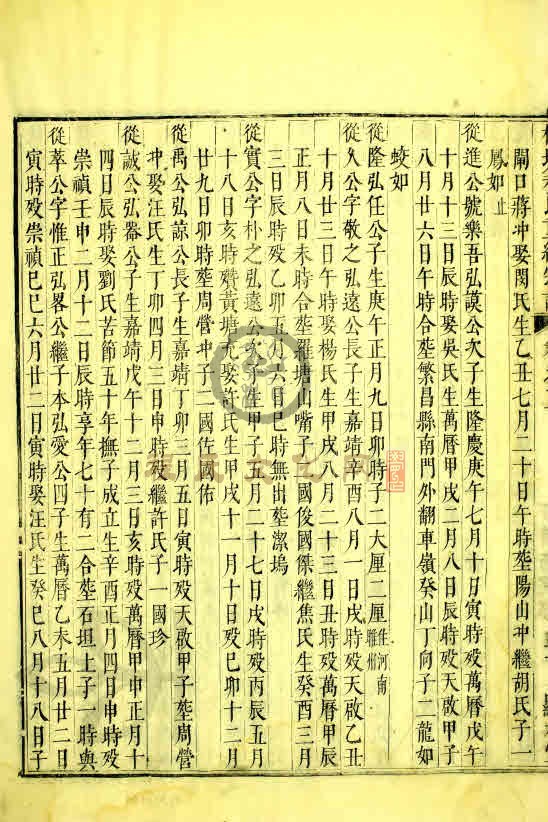 閘口蔣冲娶閔氏生乙丑七月二十日午時塟陽山冲繼胡氏子一
鳳如止
從進公號樂吾弘謨公次子生隆慶庚午七月十日寅時殁萬曆戊午
十月十三日辰時娶吳氏生萬曆甲戌二月八日辰時殁天啟甲子
八月廿六日午時合塟繁昌縣南門外翻車嶺癸山丁向子二龍如
蛟如
從隆弘任公子生庚午正月九日卯時子二大厘二厘住河南雎州
從久公字敬之弘遠公長子生嘉靖辛酉八月一日戌時殁天啟乙丑
十月廿三日午時娶楊氏生甲戌八月二十三日丑時殁萬曆甲辰
正月八日未時合塟羅塘山嘴子二國俊國傑繼焦氏生癸酉三月
三日辰時殁乙卯五月六日巳時無出塟潔塢
從實公字朴之弘遠公次子生甲子五月二十七日戌時殁丙辰五月
十八日亥時欑黃塘九娶許氏生甲戌十一月十日殁巳卯十二月
廿九日卯時塟周營冲子二國佐國佑
從禹公弘諒公長子生嘉靖丁卯三月五日寅時殁天啟甲子塟周營
冲娶汪氏生丁卯四月三日申時殁繼許氏子一國珍
從誠公弘器公子生嘉靖戊午十二月三日亥時殁萬曆甲申正月十
四日辰時娶劉氏苦節五十年撫子成立生辛酉正月四日申時殁
崇禎壬申二月十二日辰時享年七十有二合塟石垣上子一時與
從萃公字惟正弘畧公繼子本弘愛公四子生萬曆乙未五月廿二日
寅時殁崇禎巳巳六月廿二日寅時娶汪氏生癸巳八月十八日子